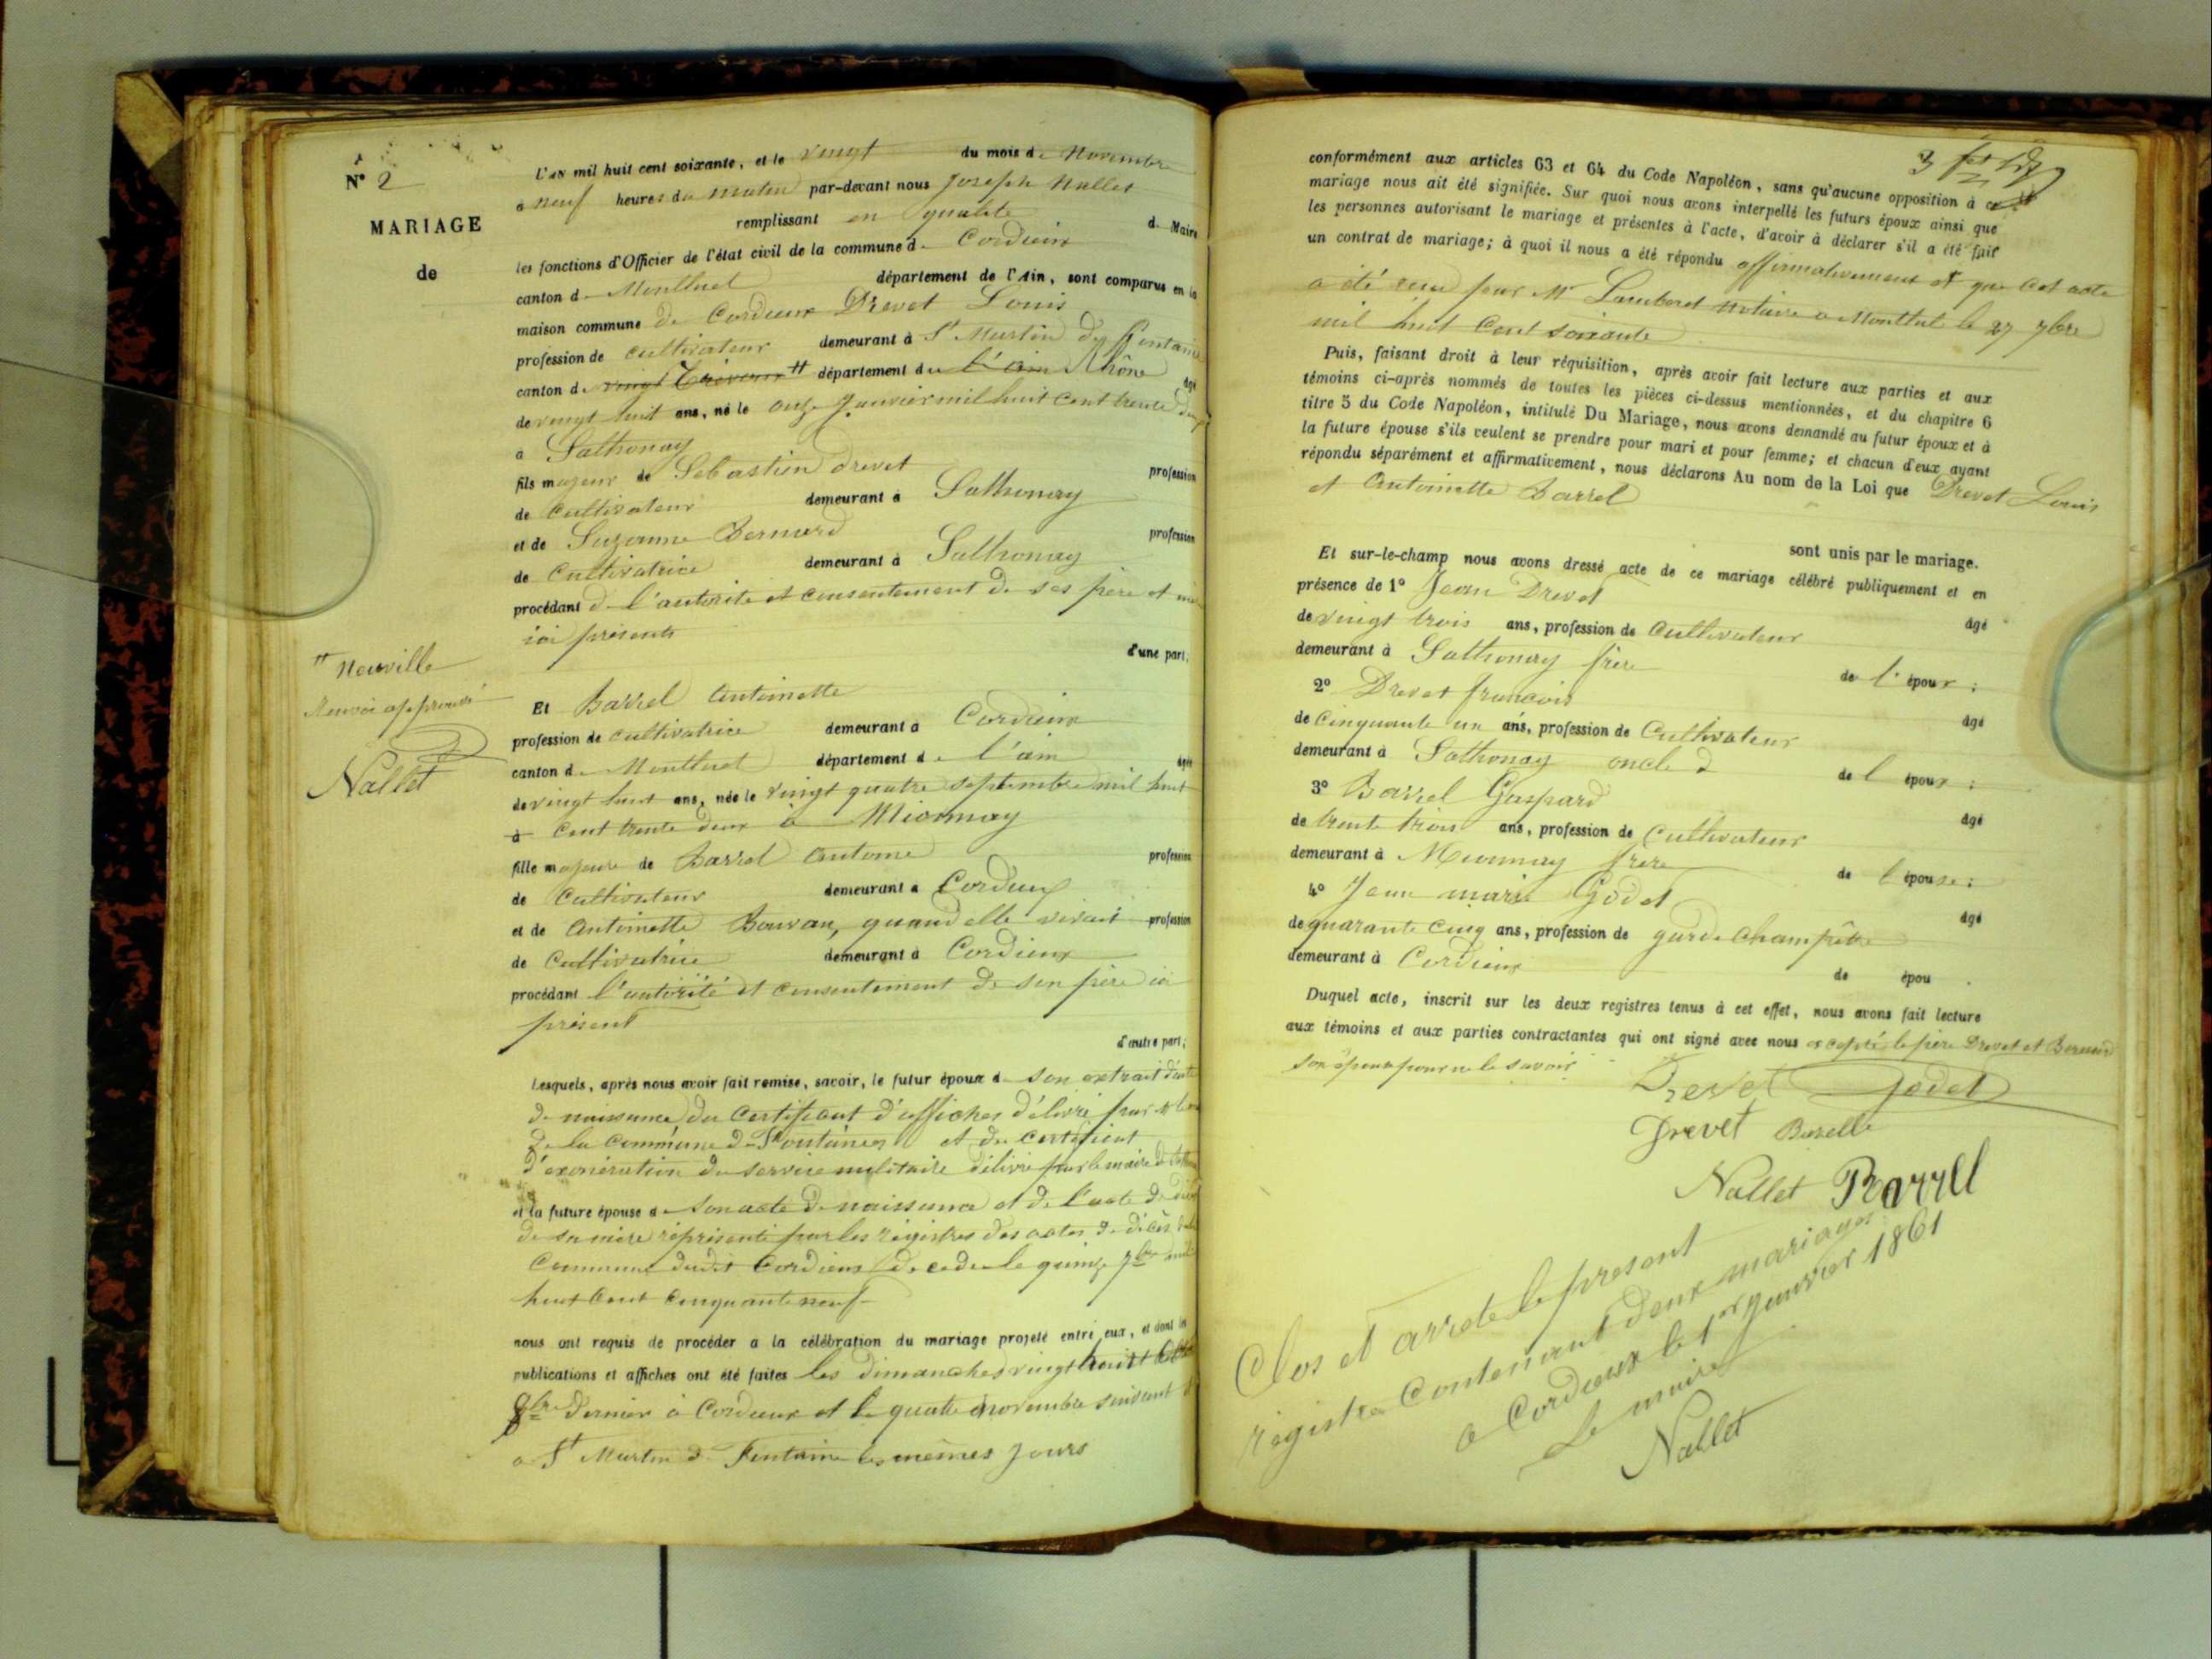 N° 2
MARIAGE
de
L'AN mil huit cent soixante, et le vingt du mois de Novembre
a neuf heures du matin par-devant nous Joseph Nallet
remplissant en qualité de Maire
les fonctions d'Officier de l'état civil de la commune de Cordieux
canton de Montluel département de l'Ain, sont comparus en la
maison commune de Cordieux Drevet Louis
profession de cultivateur demeurant à St Martin de Fontaine
canton de vingt Trévoux # département du l'ain Rhône âgé
de vingt huit ans, né le onze Janvier mil huit cent trente deux
à Sathonay
fils majeur de Sebastien Drevet profession
de cultivateur demeurant à Sathonay
et de Suzanne Bernard profession
de Cultivatrice demeurant à Sathonay
procédant de l'autorité et consentement de ses père et mère
ici présents
d'une part;
# Neuville
Renvoi approuvé
Nallet
Et Barrel Antoinette
profession de cultivatrice demeurant à Cordieux
canton de Montluel département de l'ain âgée
de vingt huit ans, née le vingt quatre septembre mil huit
à cent trente deux à Mionnay
fille majeure de Barrel Antoine profession
de Cultivateur demeurant à Cordieux
et de Antoinette Bouvan, quand elle vivait profession
de Cultivatrice demeurant à Cordieux
procédant l'autorité et consentement de son père ici
présent
d'autre part;
Lesquels, après nous avoir fait remise, savoir, le futur époux de son extrait d'acte
de naissance du Certificat d'affiches délivré par
de la Commune de Fontaines et du certificat
d'exonération du service militaire délivré par le maire de
et la future épouse de son acte de naissance et de l'acte de décès
de sa mère représenté par les registres des actes de décès de la
Commune dudit Cordieux décédée le quinze 7bre mil
huit cent cinquante neuf
nous ont requis de procéder a la célébration du mariage projeté entre eux, et dont les
publications et affiches ont été faites les dimanches vingt huit
8bre dernier à Cordieux et le quatre novembre suivant et
a St Martin de Fontaine les mêmes jours
conformément aux articles 63 et 64 du Code Napoléon, sans qu'aucune opposition à ce
mariage nous ait été signifiée. Sur quoi nous avons interpellé les futurs époux ainsi que
les personnes autorisant le mariage et présentes à l'acte, d'avoir à déclarer s'il a été fait
un contrat de mariage; à quoi il nous a été répondu affirmativement et que cet acte
a été reçu par Mr Lambert notaire a Montluel le 27 7bre
mil huit Cent soixante
Puis, faisant droit à leur réquisition, après avoir fait lecture aux parties et aux
témoins ci-après nommés de toutes les pièces ci-dessus mentionnées, et du chapitre 6
titre 5 du Code Napoléon, intitulé Du Mariage, nous avons demandé au futur époux et à
la future épouse s'ils veulent se prendre pour mari et pour femme; et chacun d'eux ayant
répondu séparément et affirmativement, nous déclarons Au nom de la Loi que Drevet Louis
et Antoinette Barrel
sont unis par le mariage.
Et sur-le-champ nous avons dressé acte de ce mariage célébré publiquement et en
présence de 1° Jean Drevet âgé
de vingt trois ans, profession de Cultivateur
demeurant à Sathonay frère de l'époux;
2° Drevet françois âgé
de Cinquante un ans, profession de Cultivateur
demeurant à Sathonay oncle d de l époux;
3° Barrel Gaspard âgé
de trente trois ans, profession de Cultivateur
demeurant à Mionnay frère de l épouse;
4° Jean marie Godet âgé
de quarante cinq ans, profession de garde champêtre
demeurant à Cordieux de épou .
Duquel acte, inscrit sur les deux registres tenus à cet effet, nous avons fait lecture
aux témoins et aux parties contractantes qui ont signé avec nous excepté le père Drevet et Bernard
son épouse pour ne le savoir
Drevet Godet
Drevet Barelle
Nallet Barrel
Clos et arrete le présent
régistre Contenant deux mariages
a Cordieux le 1er Janvier 1861
Le maire
Nallet